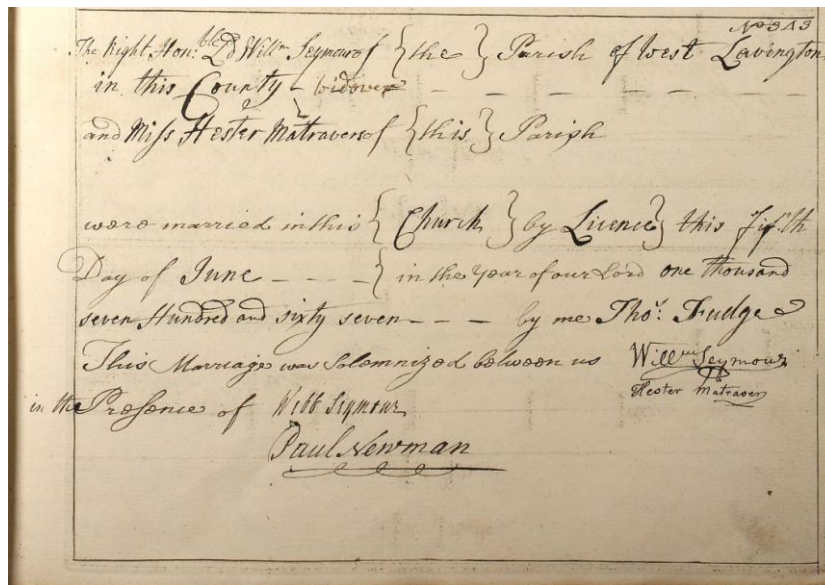 No 343
The Right Hon:ble Ld Willm Seymour of { the } Parish of West Lavington
in this County - widower - - - - - - -
and Miss Hester Matravers of { this } Parish
were married in this { Church } by Licence } this Fifth
Day of June - - - - { in the Year of our Lord one thousand
seven Hundred and sixty seven - - - by me Thos: Fudge
This Marriage was Solemnized between us Willm Seymour
Hester Matravers
in the Presence of Webb Seymour
Paul Newman